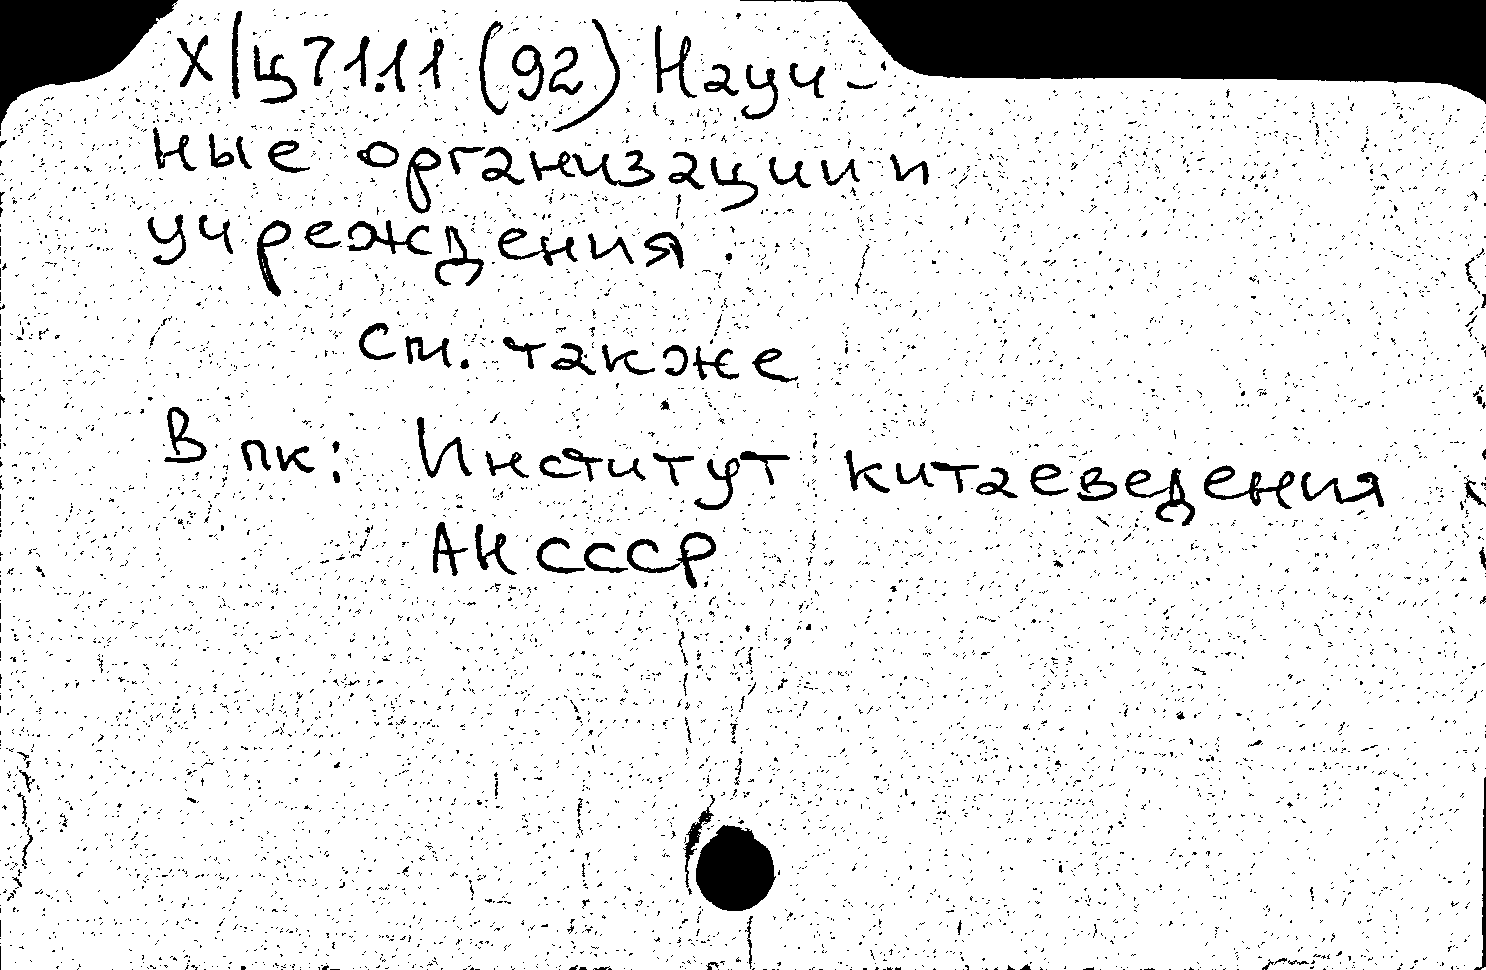 Х/Ц711.11 (92) Науч-
ные организации и
учреждения.
См. также
В пк: Институт китаеведения
АН СССР